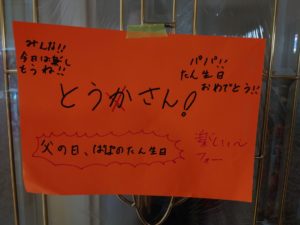 みんな!!
今日は楽し
もうね!!
パパ!!
たん生日
おめでとう!!
とうかさん!
父の日、ははのたん生日
楽しい〜
フォー